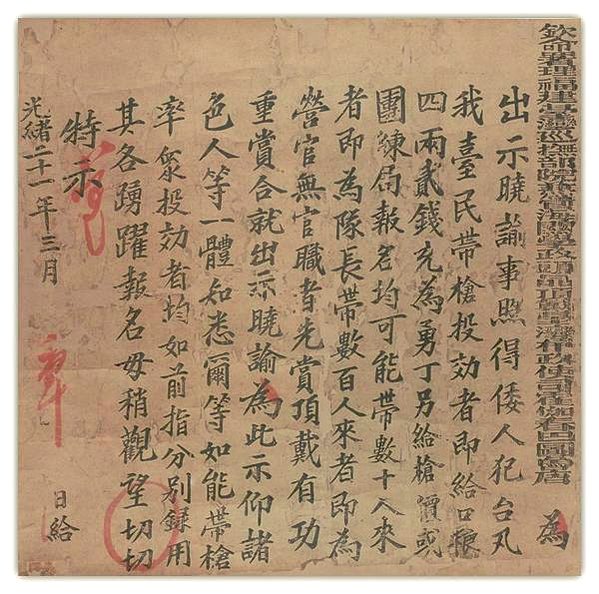 欽命署理福建臺灣巡撫部院兼管海關學政頭品頂戴臺灣布政使司霍伽春巴圖魯唐 為
出示曉諭事照得倭人犯台凡
我臺民帶槍投効者即給口糧
四兩貳錢充為勇丁另給槍價或
團練局報名均可能帶數十人來
者即為隊長帶數百人來者即為
營官無官職者先賞頂戴有功
重賞合就出示曉諭為此示仰諸
色人等一體知悉爾等如能帶槍
率衆投効者均如前指分別錄用
其各踴躍報名毋稍觀望切切
特示
光緒二十一年三月 日給